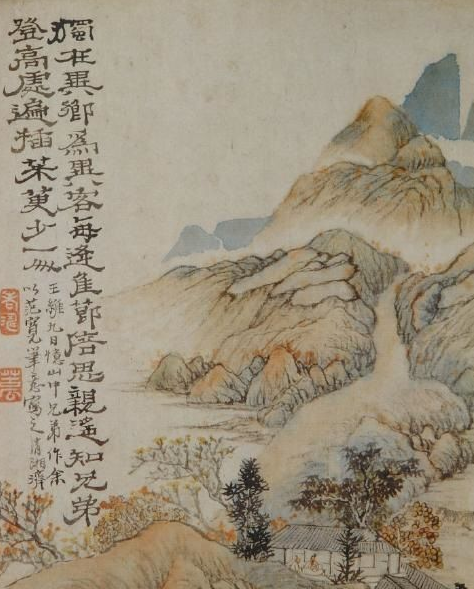 獨在異鄉為異客每逢佳節陪思親遙知兄弟
登高處遍插茱萸少一人
王維九日憶山中兄弟作余
以范寬筆意寫之清湘濟